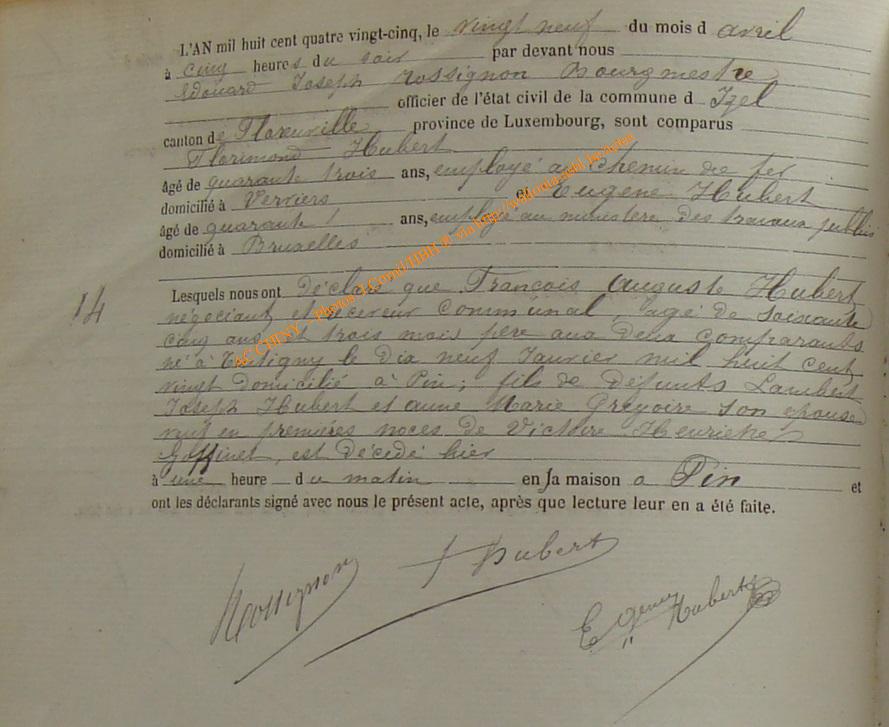 L'AN mil huit cent quatre vingt-cinq, le vingt neuf du mois d avril
à cinq heures du soir par devant nous
Edouard Joseph Rossignon Bourgmestre
officier de l'état civil de la commune d Izel
canton de Florenville province de Luxembourg, sont comparus
Florimond Hubert
âgé de quarante trois ans, employé au chemin de fer
domicilié à Verviers et Eugène Hubert
âgé de quarante ans, employé au ministère des travaux publics
domicilié à Bruxelles
14
Lesquels nous ont déclaré que François Auguste Hubert
négociant et receveur communal, âgé de soixante
cinq ans et trois mois père aux deux comparants
né à le dix neuf Janvier mil huit cent
vingt domicilié à Pin; fils de défunts Lambert
Joseph Hubert et anne Marie Grégoire son épouse
veuf en premières noces de Victoire Henriette
Goffinet, est décédé hier
à une heure du matin en sa maison a Pin et
ont les déclarants signé avec nous le présent acte, après que lecture leur en a été faite.
Rossignon
f Hubert
Hubert
AC CHINY - Photos J.Cornil HBH ® via http://wallonia.asbl.be/actes